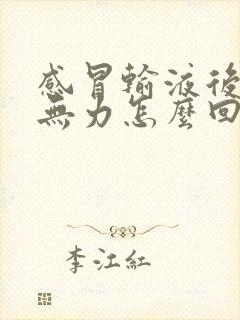 感冒輸液後
無力怎麼回
李江紅